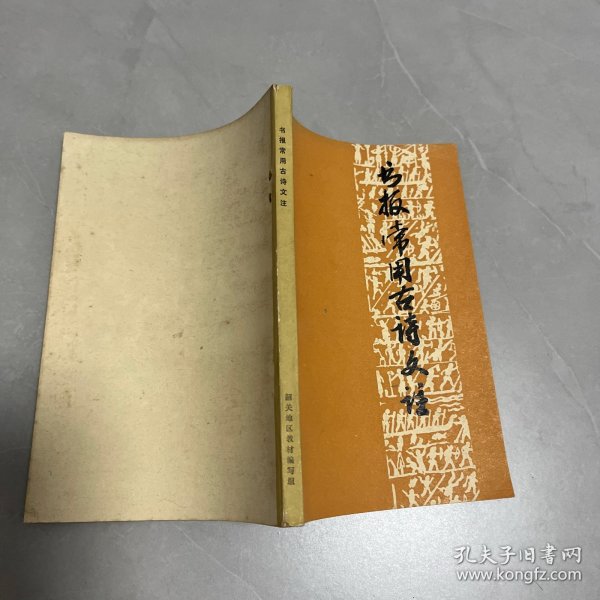 书报常用古诗文注
韶关地区教材编写组
书报常用古诗文注
孔夫子旧书网
www.kongfz.com